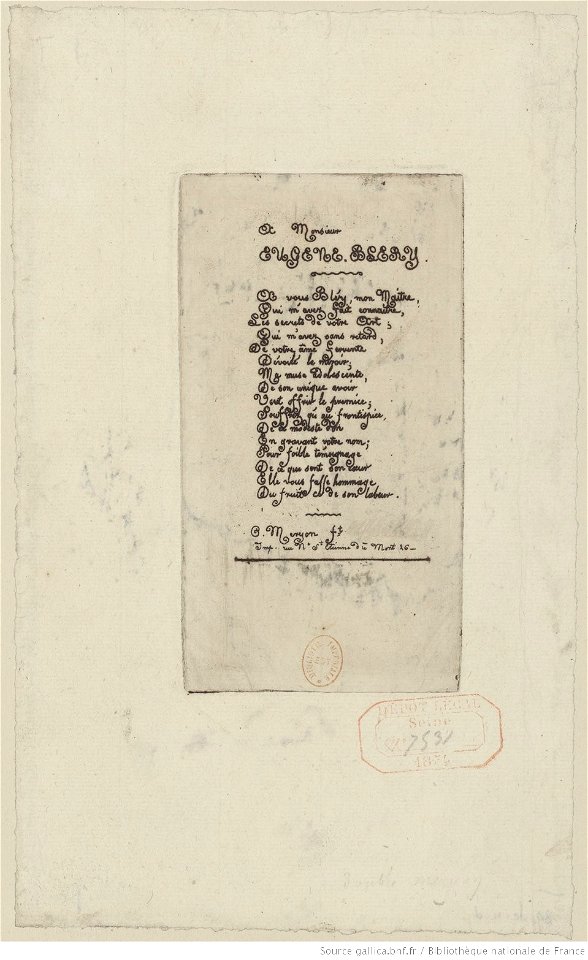 A Monsieur
EUGENE. BLERY.
A vous Bléry, mon Maître,
Qui m'avez fait connaitre,
Les secrets de votre Art;
Qui m'avez sans retard,
De votre âme fervente
Dévoilé le miroir;
Ma muse adolescente,
De son unique avoir
Vient offrir le premice;
Souffrez qu'au frontispice,
De ce modeste don
En gravant votre nom;
Pour foible témoignage
De ce que sent son cœur
Elle vous fasse hommage
Du fruit de son labeur.
C. Meryon ft
Imp. rue Ne St Etienne du Mont 26
DÉPOT LÉGAL
Seine
No 7531
1854
Source gallica.bnf.fr / Bibliothèque nationale de France